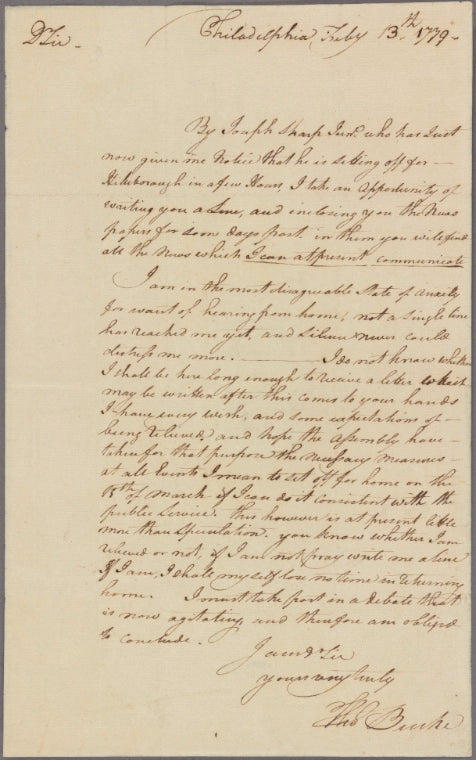 Philadelphia, Feby 13.th 1779-
Dr Sir -
By Joseph Sharp Junr. who has Just
now given me Notice that he is setting off for -
Hillsborough in a few Hours I take an Opportunity of
writing you a Line, and inclosing you the News
papers for some days past. in them you will find
all the News which I can at present communicate
I am in the most disagreeable State of anxiety
for want of hearing from home, not a Single line
has reached me yet, and Silence never could
distress me more. ——— I do not know whether
I shall be here long enough to receive a letter which
may be written after this comes to your hands
I have every wish, and some expectations of -
being relieved, and hope the Assembly have -
taken for that purpose the necessary measures -
at all Events I mean to set off for home on the
of march if I can do it consistent with the
public Service. this however is at present little
more than Speculation. you know whether I am
relieved or not, if I am not pray write me a line
If I am, I shall my self lose no time in returning
home. I must take part in a debate that
is now agitating, and therefore am obliged
to conclude.
I am dr Sir
yours very truly
Thos Burke